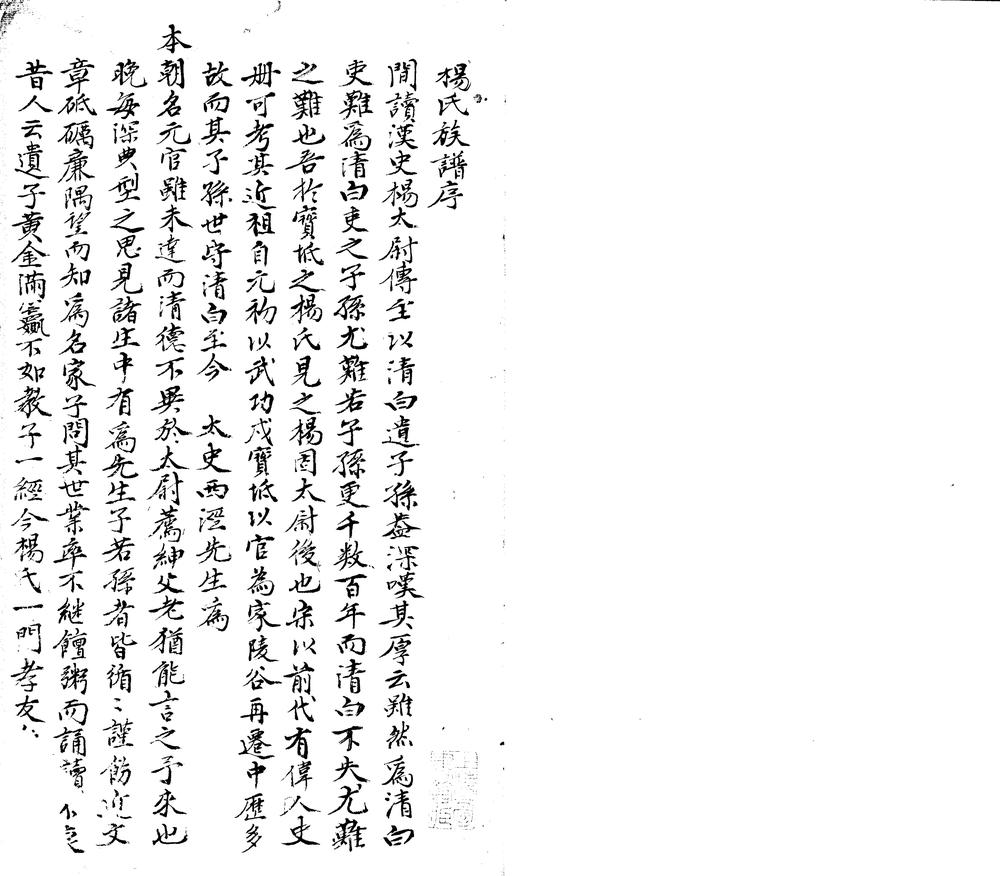 楊氏族譜序
間讀漢史楊太尉傳至以清白遺子孫葢深嘆其厚云雖然爲清白
吏難爲清白吏之子孫尤難若子孫更千数百年而清白不失尤難
之難也吾扵寶坻之楊氏見之楊固太尉後也宋以前代有偉人史
册可考其近祖自元初以武功戍寶坻以官為家陵谷再遷中歷多
故而其子孫世守清白至今 太史西澄先生爲
本朝名元官雖未達而清德不異於太尉薦紳父老猶能言之予來也
晚每深典型之思見諸生中有爲先生子若孫者皆循〻謹飭近文
章砥礪廉隅望而知爲名家子問其世業率不継饘粥而誦讀
昔人云遺子黄金滿籯不如教子一經今楊氏一門孝友